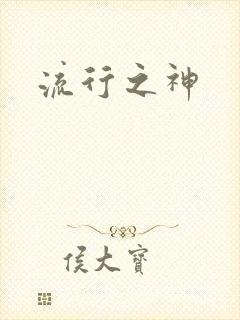 流行之神
侯大宝